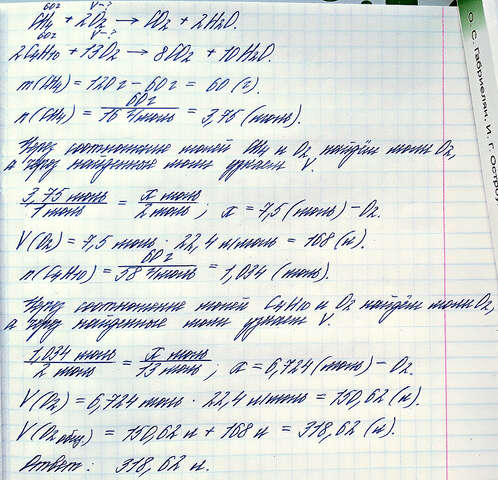 60г V-?
CH4 + 2O2 → CO2 + 2H2O.
60г V-?
2C4H10 + 13O2 → 8CO2 + 10H2O.
m(CH4) = 120г - 60г = 60 (г).
n(CH4) = 60г / 16 г/моль = 3,75 (моль).
Через соотношение молей CH4 и O2 найдём моли O2,
а через найденные моли узнаем V.
3,75 моль / 1 моль = x моль / 2 моль ; x = 7,5 (моль) - O2.
V(O2) = 7,5 моль · 22,4 л/моль = 168 (л).
n(C4H10) = 60г / 58 г/моль = 1,034 (моль).
Через соотношение молей C4H10 и O2 найдём моли O2,
а через найденные моли узнаем V.
1,034 моль / 2 моль = x моль / 13 моль ; x = 6,724 (моль) - O2.
V(O2) = 6,724 моль · 22,4 л/моль = 150,62 (л).
V(O2 общ) = 150,62 л + 168 л = 318,62 (л).
Ответ: 318,62 л.
О. С. Габриелян, И. Г. Остроу